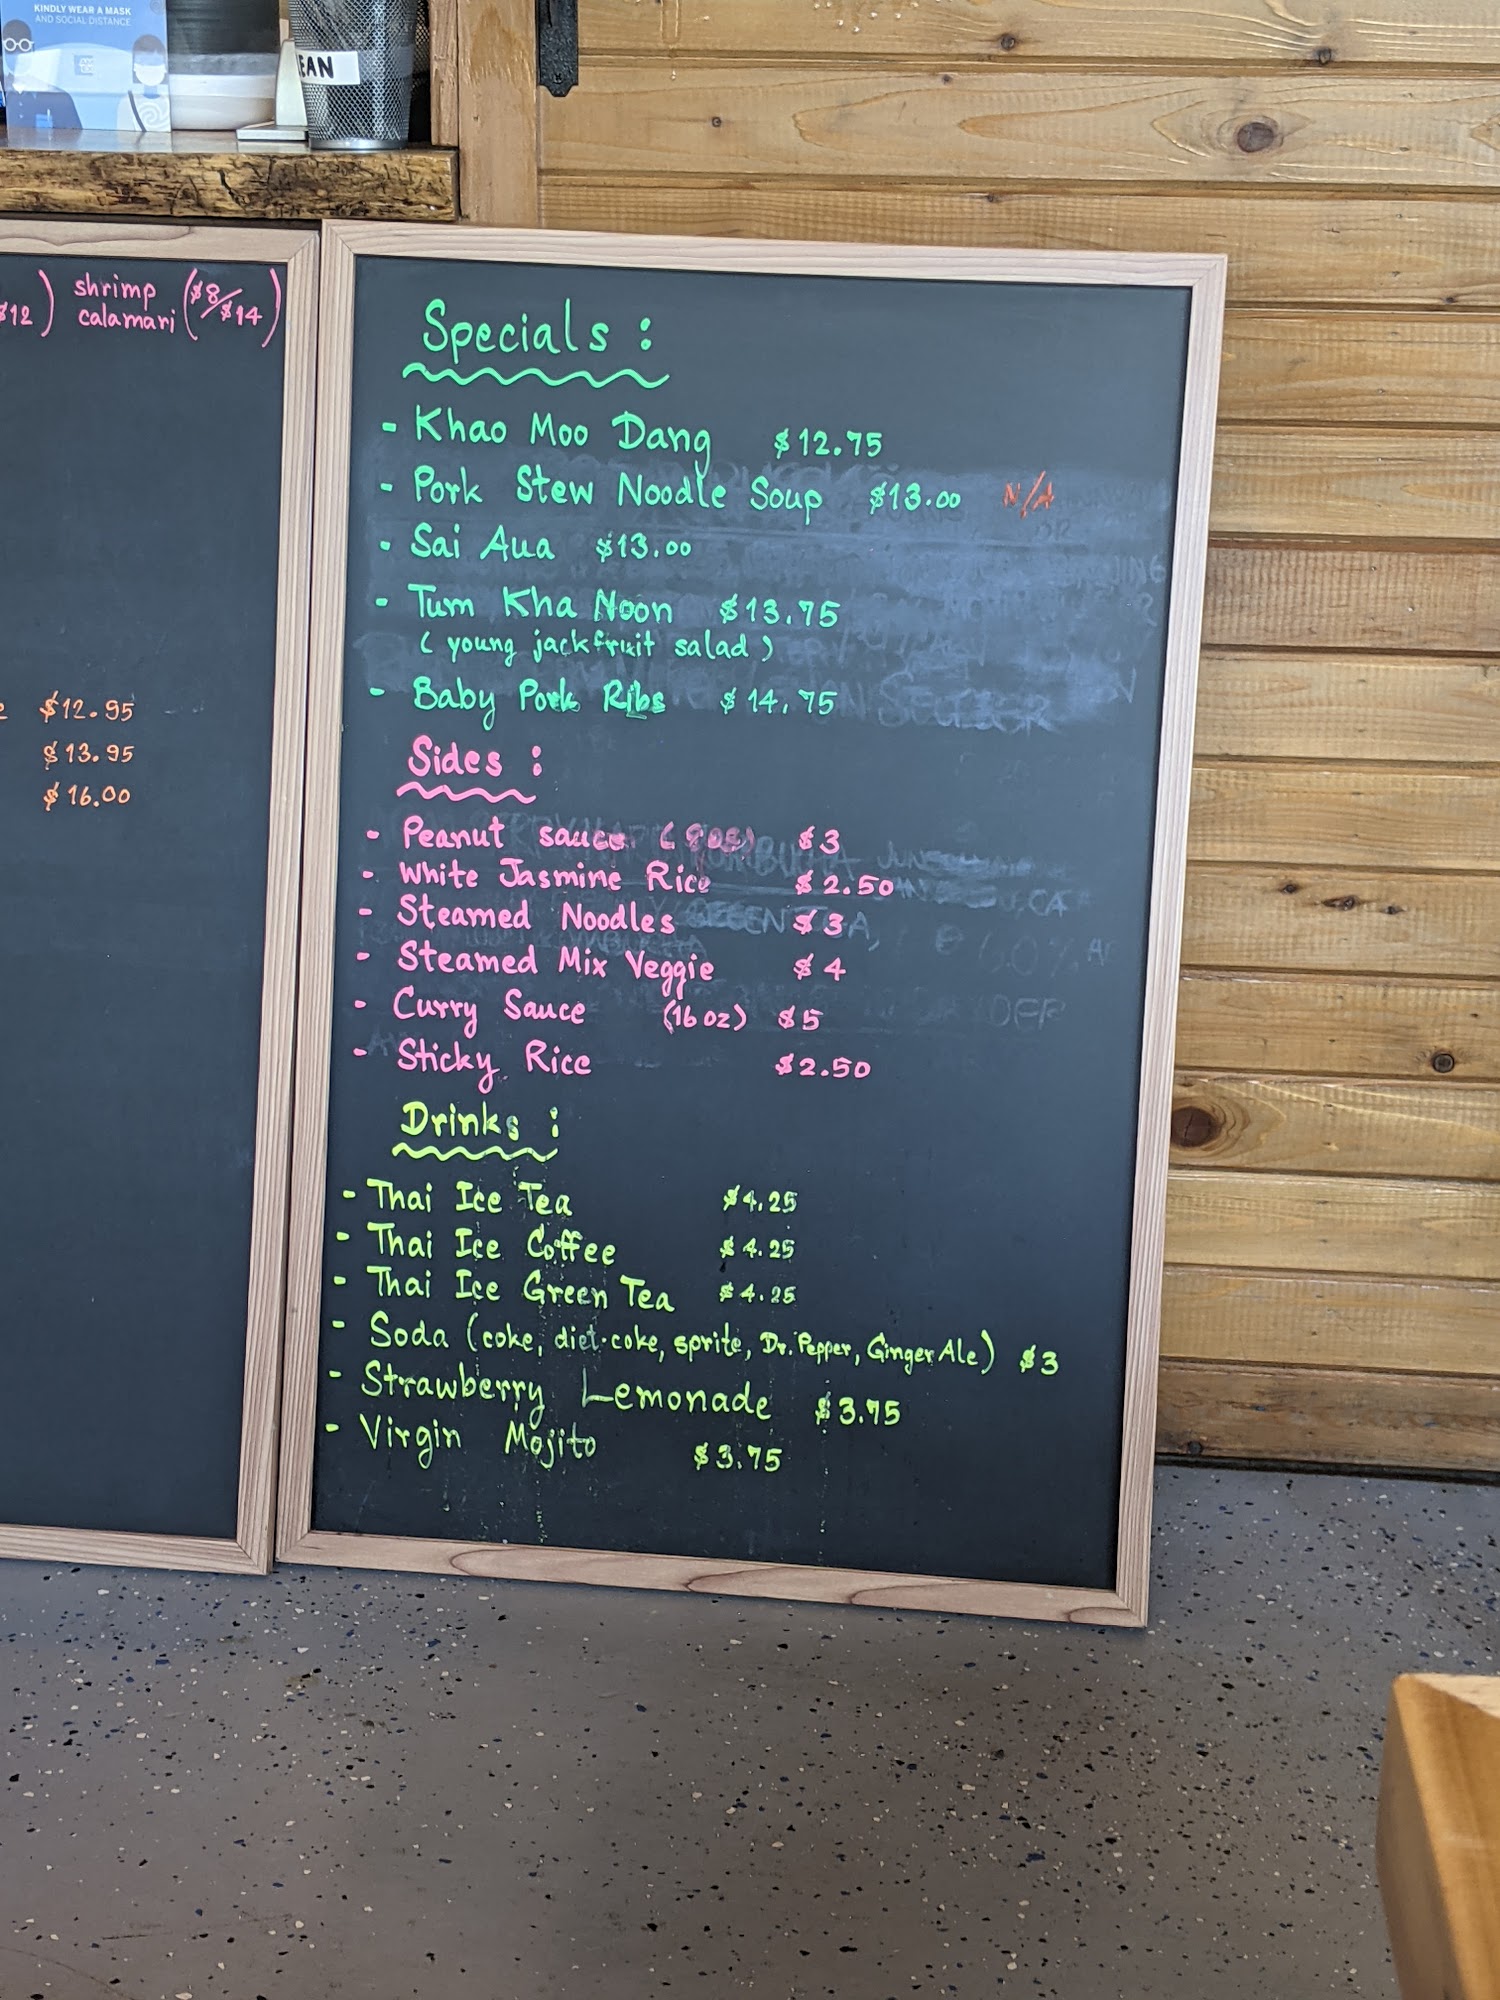 KINDLY WEAR A MASK
AND SOCIAL DISTANCE
EAN
$12) shrimp calamari ($8/$14)
$12.95
$13.95
$16.00
Specials :
- Khao Moo Dang $12.75
- Pork Stew Noodle Soup $13.00 N/A
- Sai Aua $13.00
- Tum Kha Noon $13.75
(young jackfruit salad)
- Baby Pork Ribs $14.75
Sides :
- Peanut sauce (8oz) $3
- White Jasmine Rice $2.50
- Steamed Noodles $3
- Steamed Mix Veggie $4
- Curry Sauce (16 oz) $5
- Sticky Rice $2.50
Drinks :
- Thai Ice Tea $4.25
- Thai Ice Coffee $4.25
- Thai Ice Green Tea $4.25
- Soda (coke, diet-coke, sprite, Dr. Pepper, Ginger Ale) $3
- Strawberry Lemonade $3.75
- Virgin Mojito $3.75